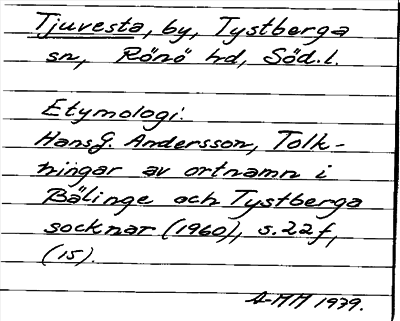 Tjuvesta, by, Tystberga
sn, Rönö hd, Söd.l.
Etymologi:
Hans G. Andersson, Tolk-
ningar av ortnamn i
Bälinge och Tystberga
socknar (1960), s. 22 f,
(15).
A-MM 1979.